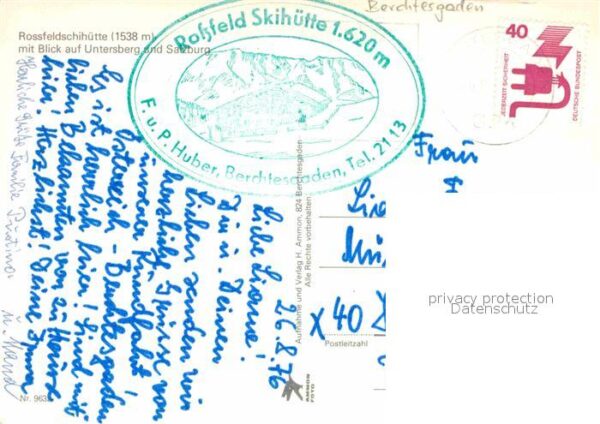 Berchtesgaden
Rossfeldschihütte (1538 m)
mit Blick auf Untersberg und Salzburg
Roßfeld Skihütte 1.620 m
F. u. P. Huber, Berchtesgaden, Tel. 2113
40
JEDERZEIT SICHERHEIT
DEUTSCHE BUNDESPOST
26.8.76
Liebe Lianne!
Dir u. Deinen
Lieben senden wir
herzliche Grüsse von
unserer Rundfahrt
Österreich - Berchtesgaden
Es ist herrlich hier! Sind mit
lieben Bekannten von zu Hause
hier! Herzlichst! Deine
Herzliche Grüße Familie
Aufnahme und Verlag H. Ammon, 824 Berchtesgaden
Alle Rechte vorbehalten
AMMON
FOTO
Nr. 963
Frau
x 40
Postleitzahl
privacy protection
Datenschutz